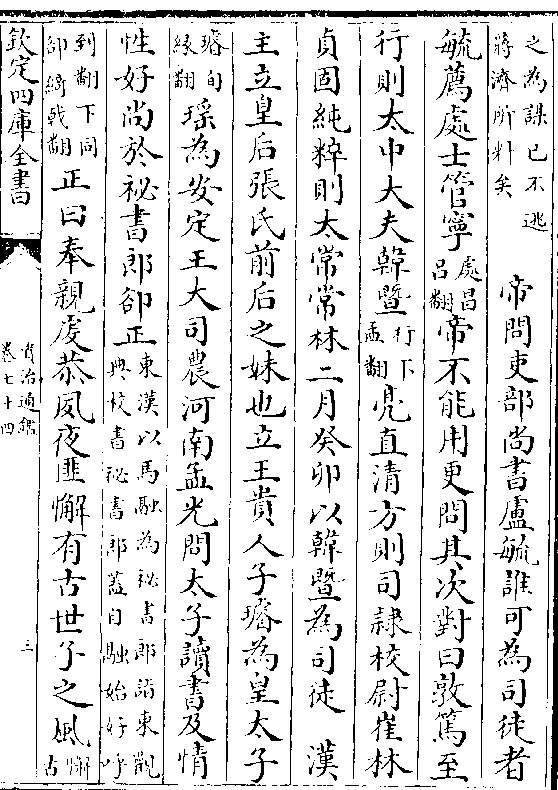 之為謀已不逃
蔣濟所料矣 帝問吏部尚書盧毓誰可為司徒者
毓薦處士管寧處昌呂翻帝不能用更問其次對曰敦篤至
行則太中大夫韓暨行下孟翻亮直清方則司隸校尉崔林
貞固純粹則太常常林二月癸卯以韓暨為司徒 漢
主立皇后張氏前后之妹也立王貴人子璿為皇太子
璿旬緣翻瑤為安定王大司農河南孟光問太子讀書及情
性好尚於祕書郎郤正東漢以馬融為祕書郎詣東觀典校書祕書郎蓋自融始好呼
到翻下同郤綺戟翻正曰奉親虔恭夙夜匪懈有古世子之風懈古
欽定四庫全書
資治通鑑
卷七十四
三